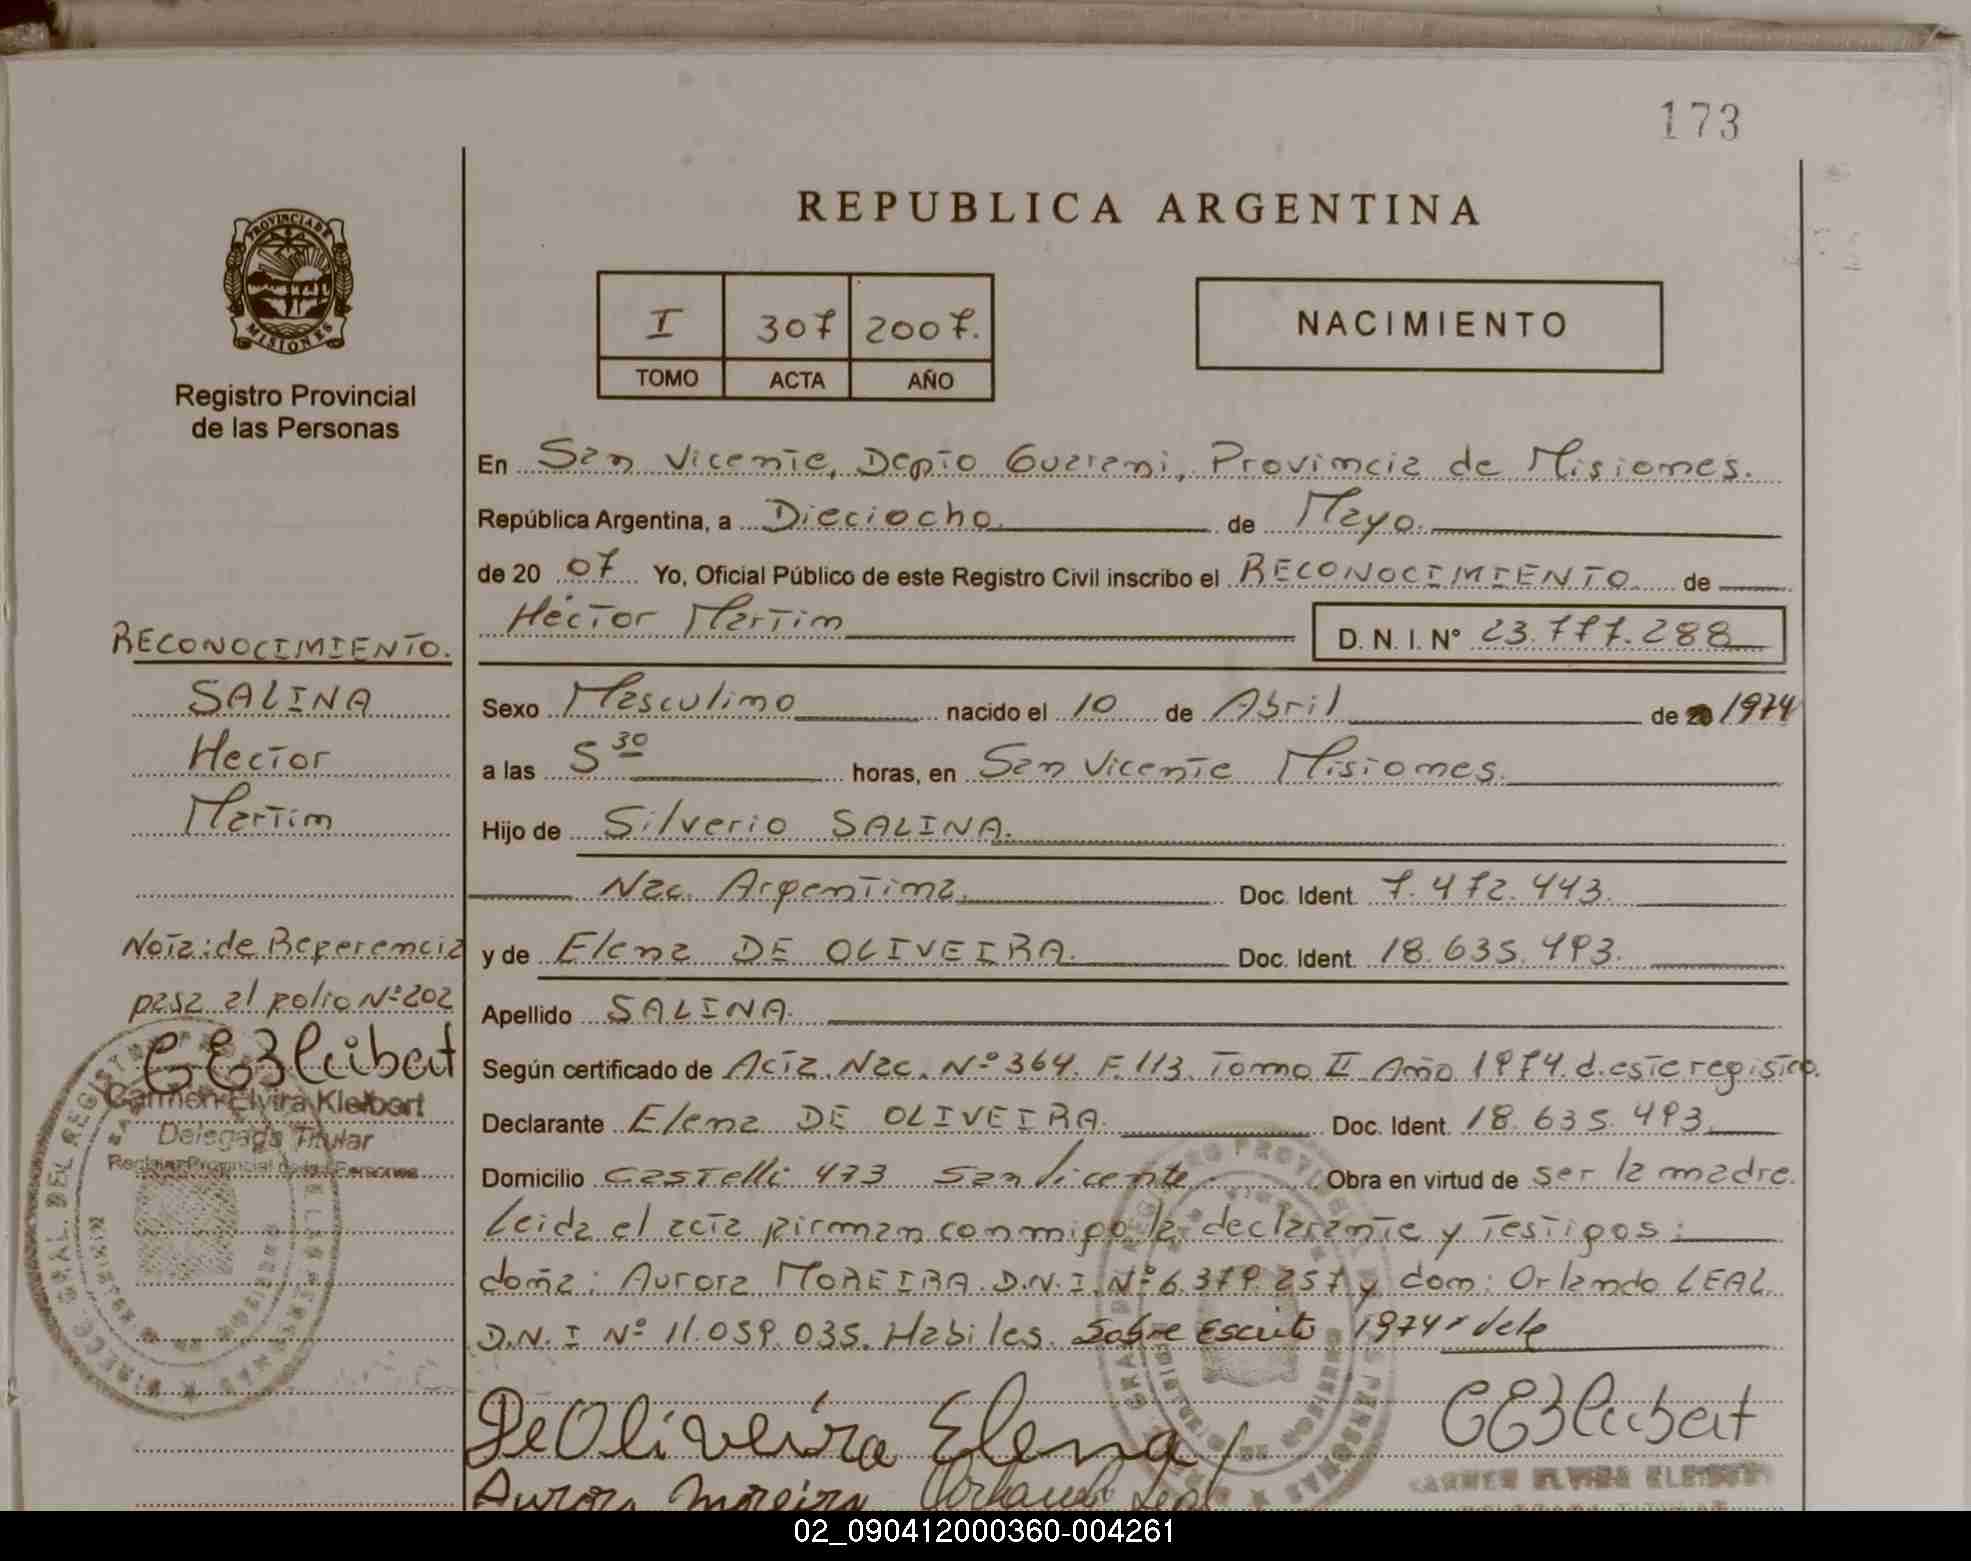 173
REPUBLICA ARGENTINA
PROVINCIA DE MISIONES
Registro Provincial
de las Personas
I 307 2007.
TOMO ACTA AÑO
NACIMIENTO
En San Vicente, Depto Guarani, Provincia de Misiones.
República Argentina, a Dieciocho. de Mayo.
de 20 07 Yo, Oficial Público de este Registro Civil inscribo el RECONOCIMIENTO de
Hector Martin D. N. I. N° 23.777.288
Sexo Masculino nacido el 10 de Abril de 1974
a las 5 30 horas, en San Vicente Misiones.
Hijo de Silverio SALINA.
Nac. Argentina. Doc. Ident. 7.472.443.
y de Elena DE OLIVEIRA. Doc. Ident. 18.635.493.
Apellido SALINA.
Según certificado de Acta Nac. N° 364. F. 113. Tomo II Año 1974. d. este registro.
Declarante Elena DE OLIVEIRA. Doc. Ident. 18.635.493.
Domicilio Castelli 473 San Vicente. Obra en virtud de ser la madre.
Leida el acta firman conmigo la declarante y testigos:
doña: Aurora MOREIRA. D.N.I. N° 6.379.257 y don: Orlando LEAL.
D.N.I N° 11.059.035. Habiles. Sobre Escrito 1974 Vale
De Oliveira Elena
Aurora Moreira Orlando Leal
CARMEN ELVIRA KLEIBERT
RECONOCIMIENTO.
SALINA
Hector
Martin
Nota: de Referencia
pasa al folio N° 202
Carmen Elvira Kleibert
Delegada Titular
Registro Provincial de las Personas
02_090412000360-004261